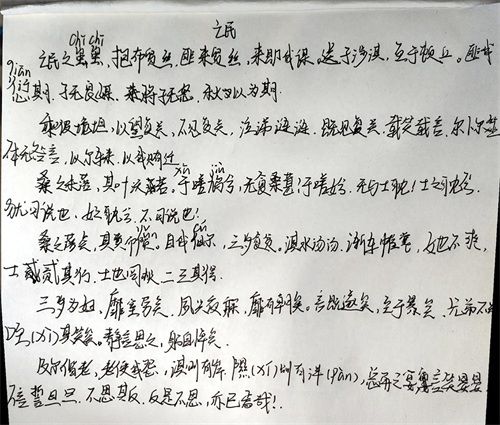 之民
chī chī
之民之蚩蚩，抱布贸丝，匪来贸丝，来即我谋。送子涉淇，至于顿丘。匪我
qiān
愆期，子无良媒，将子无怒，秋以为期。
乘彼垝垣，以望复关，不见复关，泣涕涟涟，既见复关，载笑载言，尔卜尔筮
体无咎言，以尔车来，以我贿迁
桑之未落，其叶沃若。于嗟鸠兮，无食桑葚！于嗟女兮，无与士耽！士之耽兮，
犹可说也，女之耽兮，不可说也！
桑之落矣，其黄而陨。自我徂尔，三岁食贫。淇水汤汤，渐车帷裳，女也不爽，
士贰其行，士也罔极，二三其德。
三岁为妇，靡室劳矣，夙兴夜寐，靡有朝矣。言既遂矣，至于暴矣，兄弟不知
咥(xì)其笑矣。静言思之，躬自悼矣。
及尔偕老，老使我怨，淇则有岸，隰(xí)则有泮(pàn)，总角之宴，言笑晏晏
信誓旦旦，不思其反，反是不思，亦已焉哉！